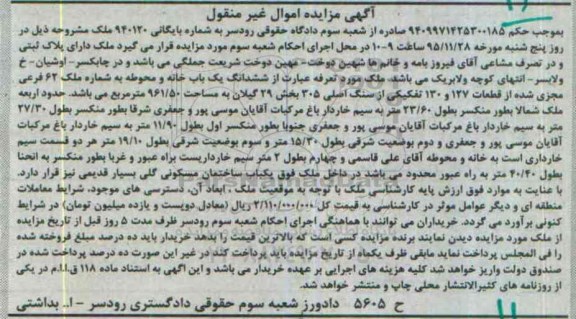 آگهی مزایده اموال غیر منقول
بموجب حکم ۹۴۰۹۹۷۱۴۲۵۳۰۰۱۸۵ صادره از شعبه سوم دادگاه حقوقی رودسر به شماره بایگانی ۹۴۰۱۲۰ ملک مشروحه ذیل در
روز پنج شنبه مورخه ۹۵/۱۱/۲۸ ساعت ۹-۱۰ در محل اجرای احکام شعبه سوم مورد مزایده قرار می گیرد ملک دارای پلاک ثبتی
و در تصرف مشاعی آقای فیروز بامه و خانم ها شهین دوخت - مهین دوخت شریعت جملگی می باشد و در چابکسر - اوشیان - خ
ولابسر - انتهای کوچه ولابریک می باشد. ملک مورد تعرفه عبارت از ششدانگ یک باب خانه و محوطه به شماره ملک ۶۲ فرعی
مجزی شده از قطعات ۱۲۷ و ۱۳۰ تفکیکی از سنگ اصلی ۳۰۵ بخش ۲۹ گیلان به مساحت ۹۶۱/۵۰ مترمربع می باشد. حدود اربعه
ملک شمالا بطور منکسر بطول ۲۳/۶۰ متر به سیم خاردار باغ مرکبات آقایان موسی پور و جعفری شرقا بطور منکسر بطول ۲۷/۳۰
متر به سیم خاردار باغ مرکبات آقایان موسی پور و جعفری جنوبا بطور منکسر اول بطول ۱۱/۹۰ متر به سیم خاردار باغ مرکبات
آقایان موسی پور و جعفری و دوم بوضعیت شرقی بطول ۱۵/۳۰ متر و سوم بوضعیت شرقی بطول ۱۹/۱۰ متر هر دو قسمت سیم
خارداری است به خانه و محوطه آقای علی قاسمی و چهارم بطول ۲ متر سیم خارداریست براه عبور و غربا بطور منکسر به انحنا
بطول ۴۰/۴۰ متر به راه عبور محدود می باشد در داخل ملک فوق یکباب ساختمان مسکونی گلی بسیار قدیمی نیز قرار دارد.
با عنایت به موارد فوق ارزش پایه کارشناسی ملک با توجه به موقعیت ملک ، ابعاد آن، دسترسی های موجود، شرایط معاملات
منطقه ای و دیگر عوامل موثر در کارشناسی به قیمت کل ۲/۱۱۰/۰۰۰/۰۰۰ ریال (معادل دویست و یازده میلیون تومان) در شرایط
کنونی برآورد می گردد. خریداران می توانند با هماهنگی اجرای احکام شعبه سوم رودسر ظرف مدت ۵ روز قبل از تاریخ مزایده
از ملک مورد مزایده دیدن نمایند برنده مزایده کسی است که بالاترین قیمت را بدهد خریدار باید ده درصد مبلغ فروخته شده
را فی المجلس پرداخت نماید مابقی ظرف یکماه از تاریخ مزایده باید پرداخت کند در غیر این صورت ده درصد پرداخت شده در
صندوق دولت واریز خواهد شد. کلیه هزینه های اجرایی بر عهده خریدار می باشد و این آگهی به استناد ماده ۱۱۸ ق.ا.ا.م در یکی
از روزنامه های کثیرالانتشار محلی چاپ و منتشر خواهد شد.
ح ۵۶۰۵ دادورز شعبه سوم حقوقی دادگستری رودسر - ا... بداشتی